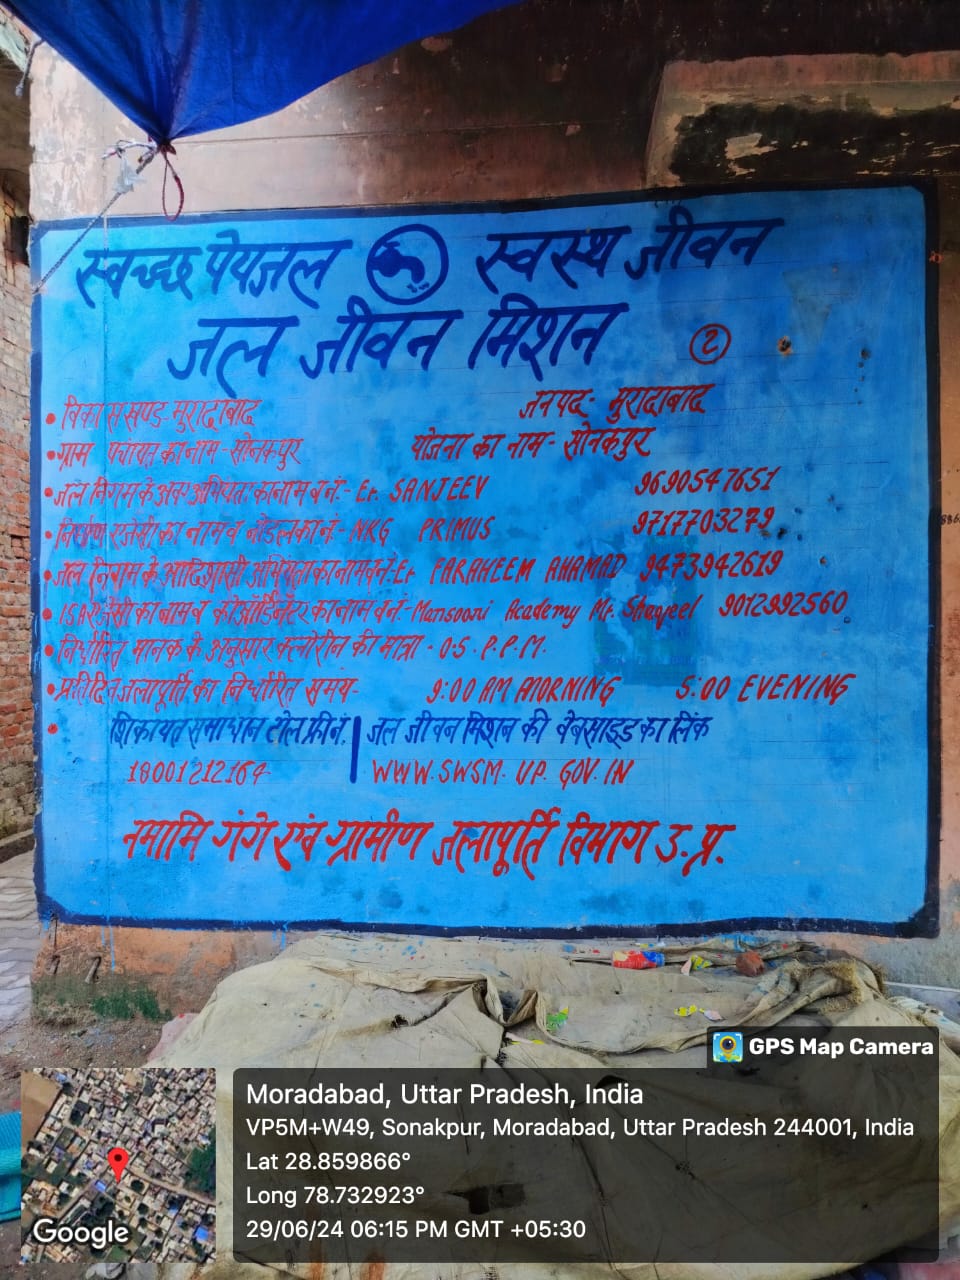 स्वच्छ पेयजल स्वस्थ जीवन
जल जीवन मिशन 2
• विकास खण्ड- मुरादाबाद जनपद:- मुरादाबाद
• ग्राम पंचायत का नाम - सोनकपुर योजना का नाम- सोनकपुर
• जल निगम के अवर अभियंता का नाम व नं:- Er. SANJEEV 9690547651
• निर्माण एजेंसी का नाम व नोडल का नं:- NKG PRIMUS 9717703279
• जल निगम के अधिशासी अभियंता का नाम व नं: Er FARAHEEM AHAMAD 9473942619
• ISA एजेंसी का नाम व कोऑर्डिनेटर का नाम व नं:- Mansoori Academy Mr. Shaqeel 9012992560
• निर्धारित मानक के अनुसार क्लोरीन की मात्रा - 0.5. P.P.M.
• प्रतिदिन जलापूर्ति का निर्धारित समय- 9:00 AM MORNING 5:00 EVENING
• शिकायत समाधान टोल फ्री नं. जल जीवन मिशन की वेबसाइड का लिंक
18001212164 WWW.SWSM.UP.GOV.IN
नमामि गंगे एवं ग्रामीण जलापूर्ति विभाग उ.प्र.
GPS Map Camera
Moradabad, Uttar Pradesh, India
VP5M+W49, Sonakpur, Moradabad, Uttar Pradesh 244001, India
Lat 28.859866°
Long 78.732923°
29/06/24 06:15 PM GMT +05:30
Google